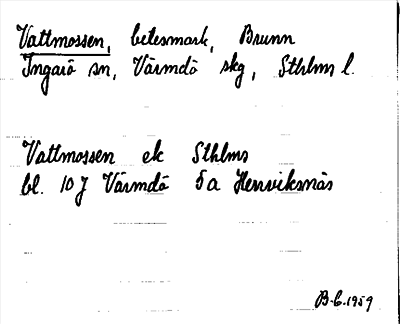 Vattmossen, betesmark, Brunn
Ingarö sn, Värmdö skg, Sthlms l.
Vattmossen ek Sthlms
bl. 10 J Värmdö 5a Henriksnäs
B-C. 1959